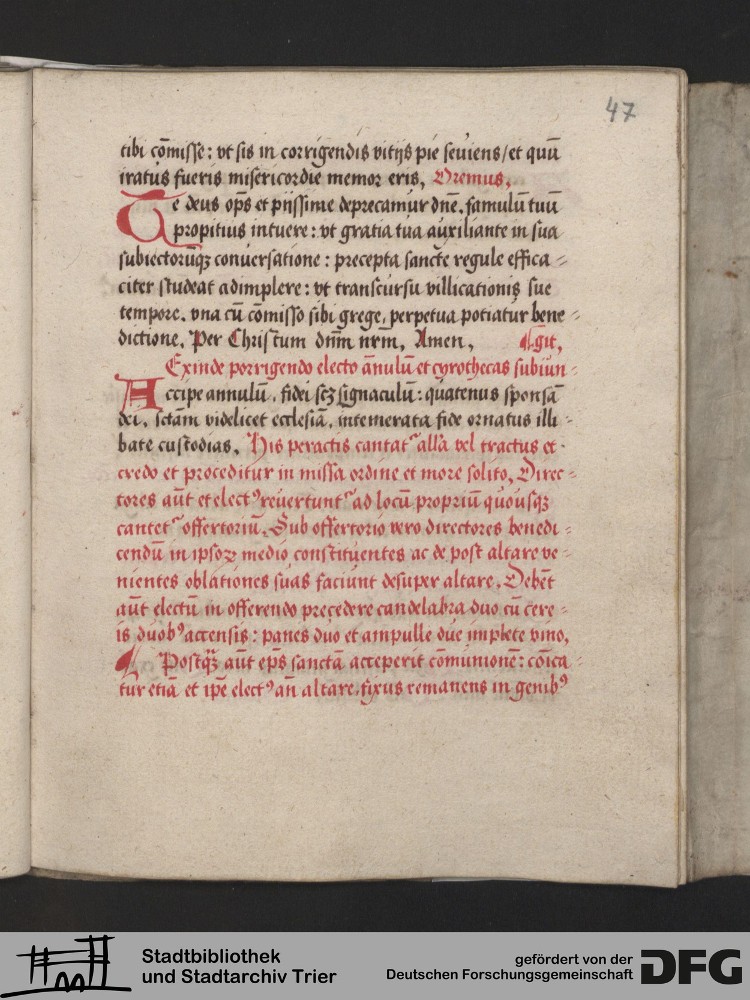 47
tibi cōmisse: vt sis in corrigendis vitijs pie seuiens/et quū
iratus fueris misericordie memor eris, Oremus,
Te deus oп̄s et piissime deprecamur dn̄e, famulū tuū
propitius intuere: vt gratia tua auxiliante in sua
subiectorūqꝫ conuersatione: precepta sancte regule effica=
citer studeat adimplere: vt transcursu villicationis sue
tempore, vna cū cōmisso sibi grege, perpetua potiatur bene=
dictione, Per Christum dn̄m nr̄m, Amen, ¶git,
Exinde porrigendo electo ānulū et cyrothecas subiun=
Accipe annulū, fidei scꝫ signaculū: quatenus sponsā
dei, sctām videlicet ecclesiā, intemerata fide ornatus illi
bate custodias, His peractis cantat᷑ all̄a vel tractus et
credo et proceditur in missa ordine et more solito, Direc=
tores aūt et electꝰ reuertunt᷑ ad locū propriū quousqꝫ
cantet᷑ offertoriū, Sub offertorio vero directores benedi=
cendū in ipsoꝝ medio constituentes ac de post altare ve=
nientes oblationes suas faciunt desuper altare, Debēt
aūt electū in offerendo precedere candelabra duo cū cere=
is duobꝰ accensis: panes duo et ampulle due implete vino,
¶ Postqꝫ̄ aūt ep̄s sanctā acceperit cōmunionē: cōica
tur etiā et ip̄e electꝰ an̄ altare, fixus remanens in genibꝰ
Stadtbibliothek
und Stadtarchiv Trier
gefördert von der
Deutschen Forschungsgemeinschaft
DFG